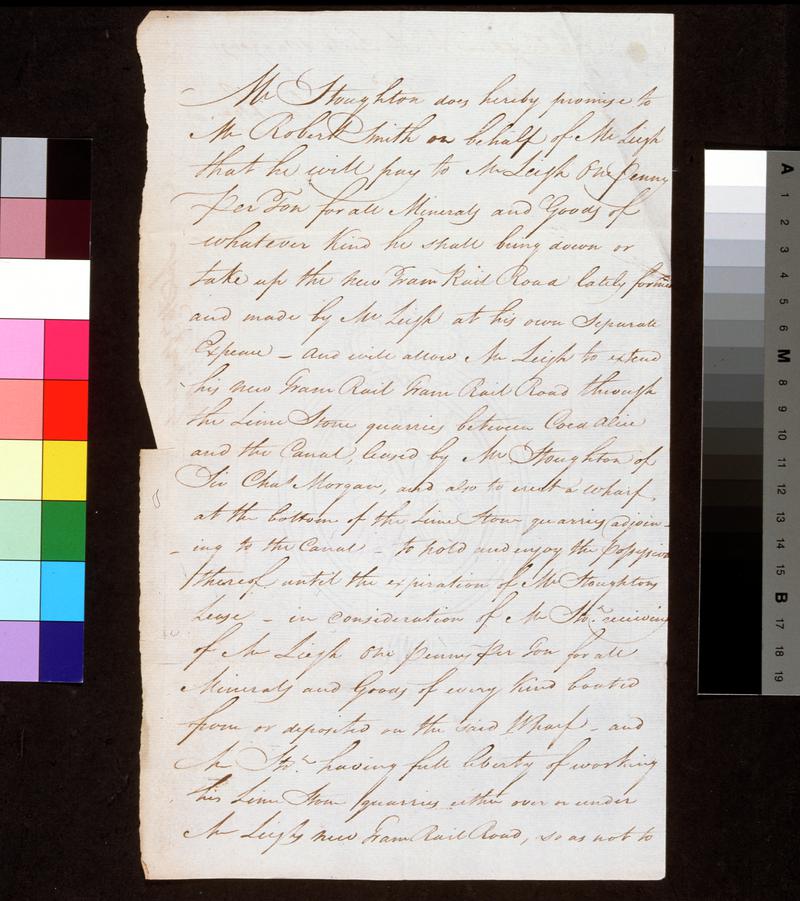 Mr Stoughton does hereby promise to
Mr Robert Smith on behalf of Mr Leigh
that he will pay to Mr Leigh One Penny
Per Ton for all Minerals and Goods of
whatever Kind he shall bring down or
take up the new Tram Rail Road lately formed
and made by Mr Leigh at his own Separate
Expence – and will allow Mr Leigh to extend
his new Tram Rail Tram Rail Road through
the Lime Stone quarries between Coed
and the Canal, leased by Mr Stoughton of
Sir Chas Morgan, and also to erect a Wharf,
at the bottom of the Lime Stone quarries adjoin-
-ing to the Canal – to hold and enjoy the Possession
thereof until the expiration of Mr Stoughtons
Lease – in consideration of Mr Sto.n receiving
of Mr Leigh One Penny Per Ton for all
Minerals and Goods of every Kind boated
from or deposited on the said Wharf – and
Mr Sto.n having full liberty of working
his Lime Stone quarries either over or under
Mr Leighs new Tram Rail Road, so as not to
A
1
2
3
4
5
6
M
8
9
10
11
12
13
14
15
B
17
18
19